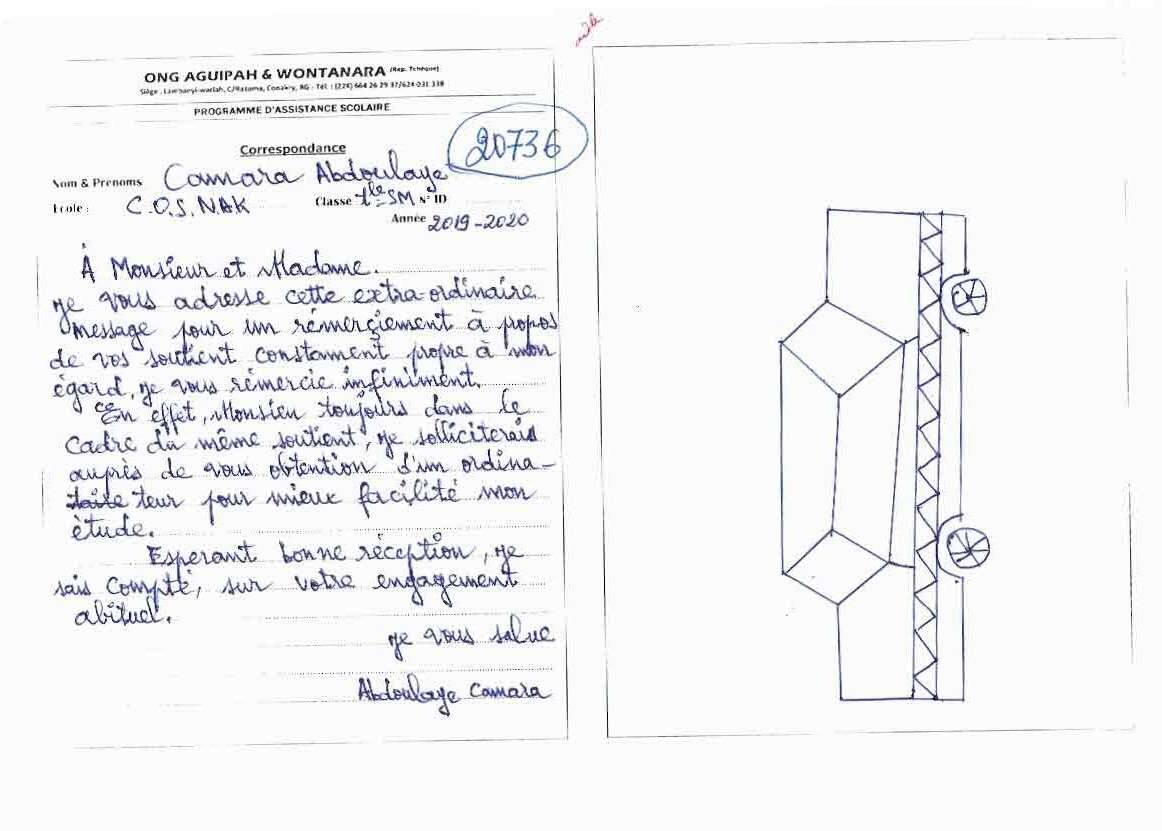 ONG AGUIPAH & WONTANARA (Rep. Tchèque)
Siège : Lambanyi-wariah, C/Ratoma, Conakry, RG - Tél. : (224) 664 26 29 37/624 031 338
PROGRAMME D'ASSISTANCE SCOLAIRE
20736
Correspondance
Nom & Prénoms Camara Abdoulaye
Ecole : C.O.S. NAK Classe 1le SM N° ID
Année 2019-2020
À Monsieur et Madame.
Je vous adresse cette extra-ordinaire
message pour un rémerçiement à propos
de vos soutient constament propre à mon
égard, je vous rémercie infiniment.
En effet, Monsieu toujours dans le
cadre du même soutient, je solliciterais
auprès de vous obtention d'un ordina-
teur pour mieux facilité mon
ètude.
Esperant bonne réception, je
sais compté, sur votre engagement
abituel.
Je vous salue
Abdoulaye Camara